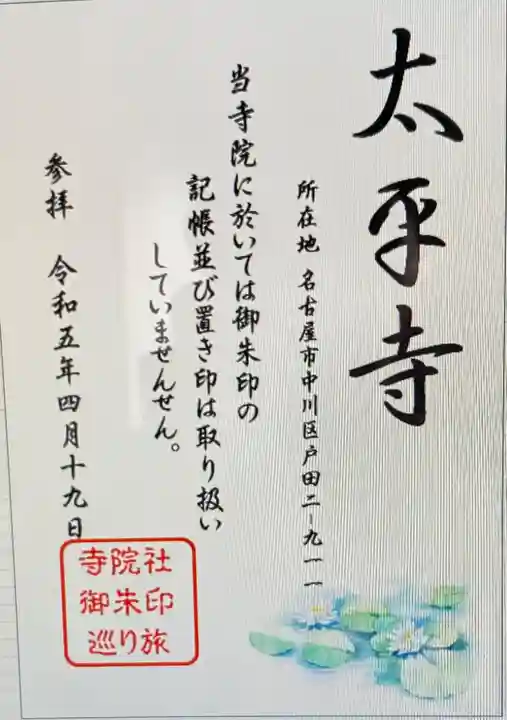 太平寺
所在地 名古屋市中川区戸田二-九一一
当寺院に於いては御朱印の
記帳並び置き印は取り扱い
していませんせん。
参拝 令和五年四月十九日
寺院社
御朱印
巡り旅